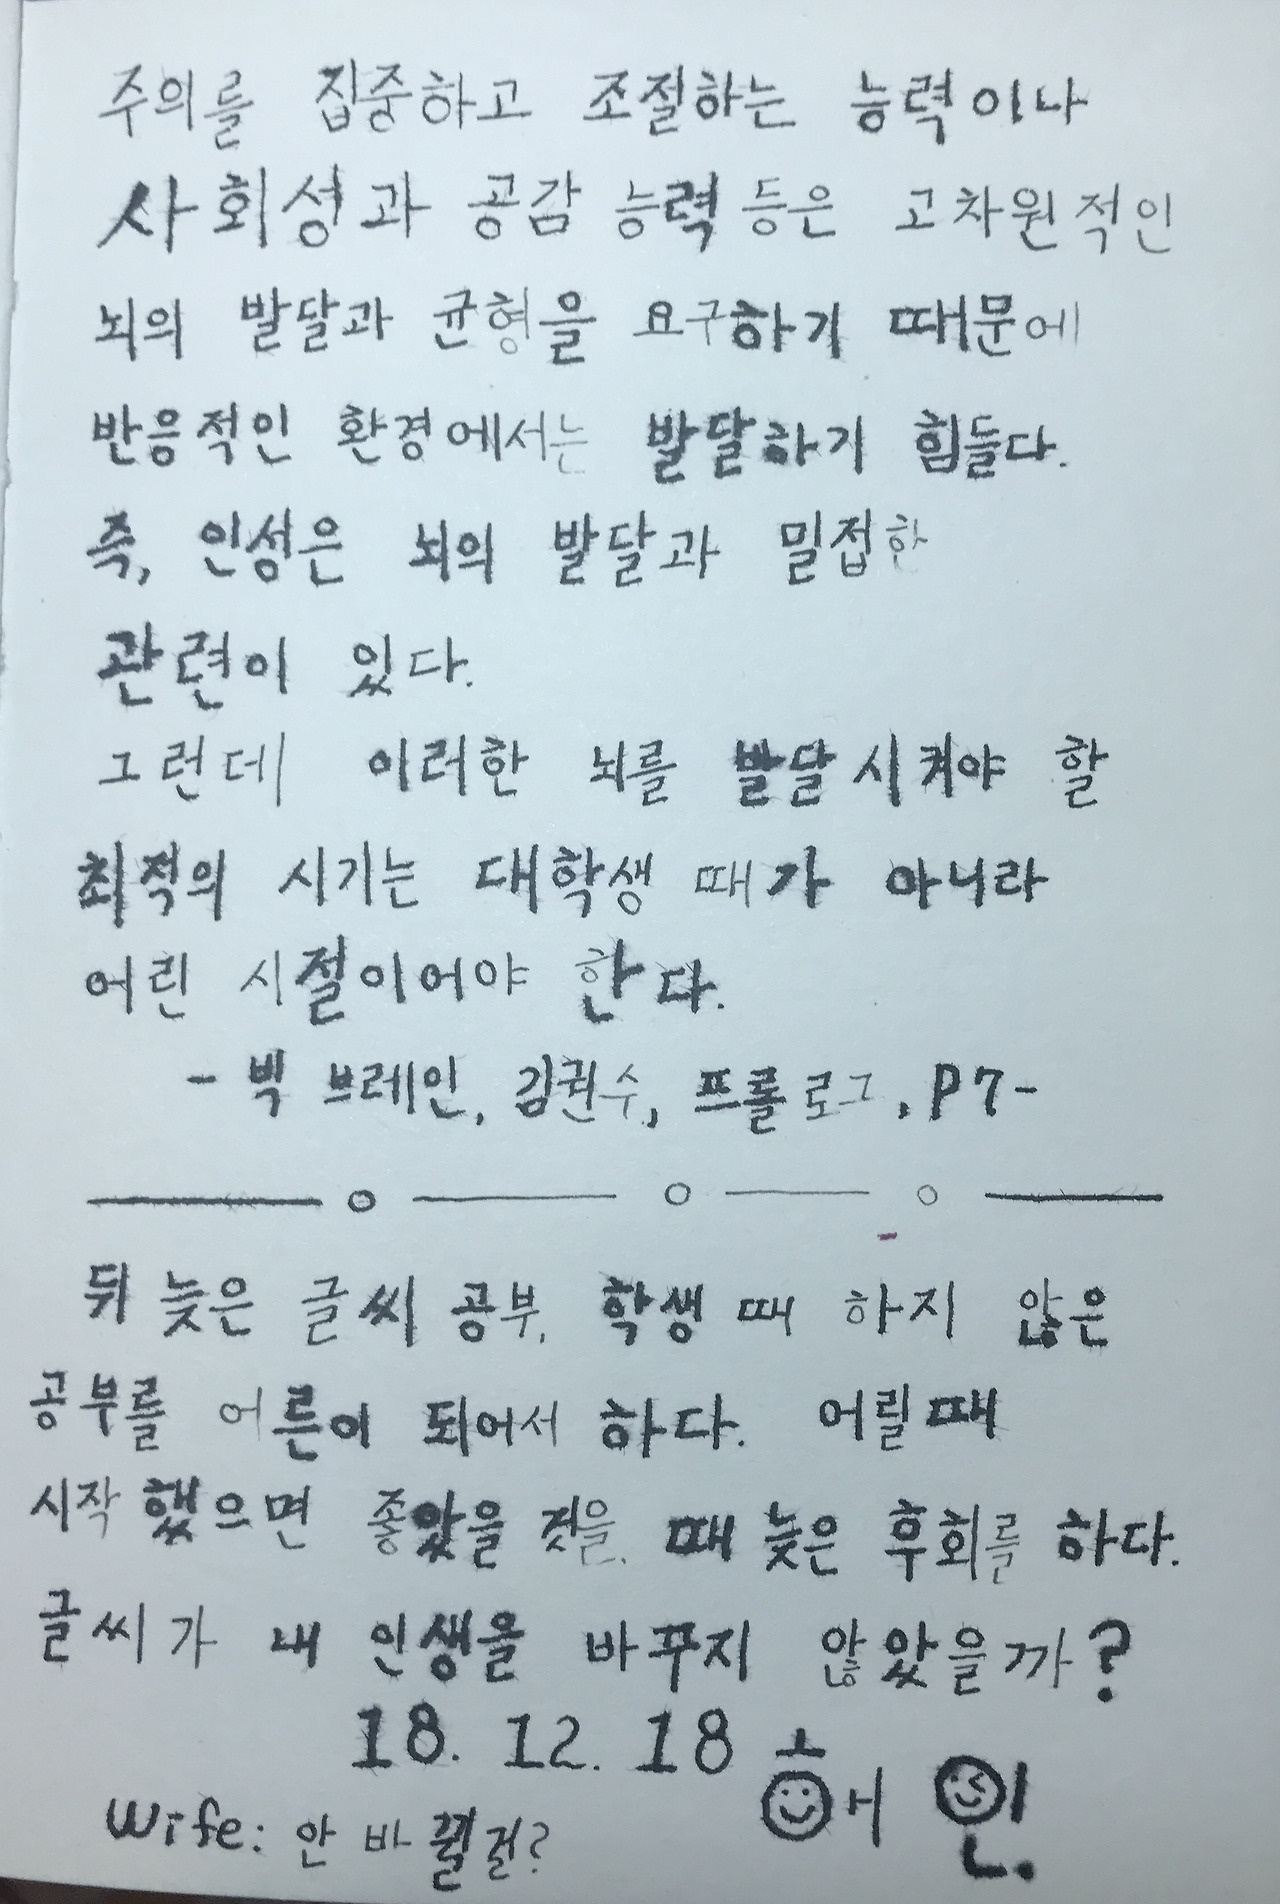 주의를 집중하고 조절하는 능력이나
사회성과 공감 능력 등은 고차원적인
뇌의 발달과 균형을 요구하기 때문에
반응적인 환경에서는 발달하기 힘들다.
즉, 인성은 뇌의 발달과 밀접한
관련이 있다.
그런데 이러한 뇌를 발달시켜야 할
최적의 시기는 대학생 때가 아니라
어린 시절이어야 한다.
- 빅 브레인, 김권수, 프롤로그, P7-
뒤 늦은 글씨 공부. 학생 때 하지 않은
공부를 어른이 되어서 하다. 어릴때
시작했으면 좋았을 것을. 때 늦은 후회를 하다.
글씨가 내 인생을 바꾸지 않았을까?
18. 12. 18 혜인.
Wife: 안 바뀔걸?